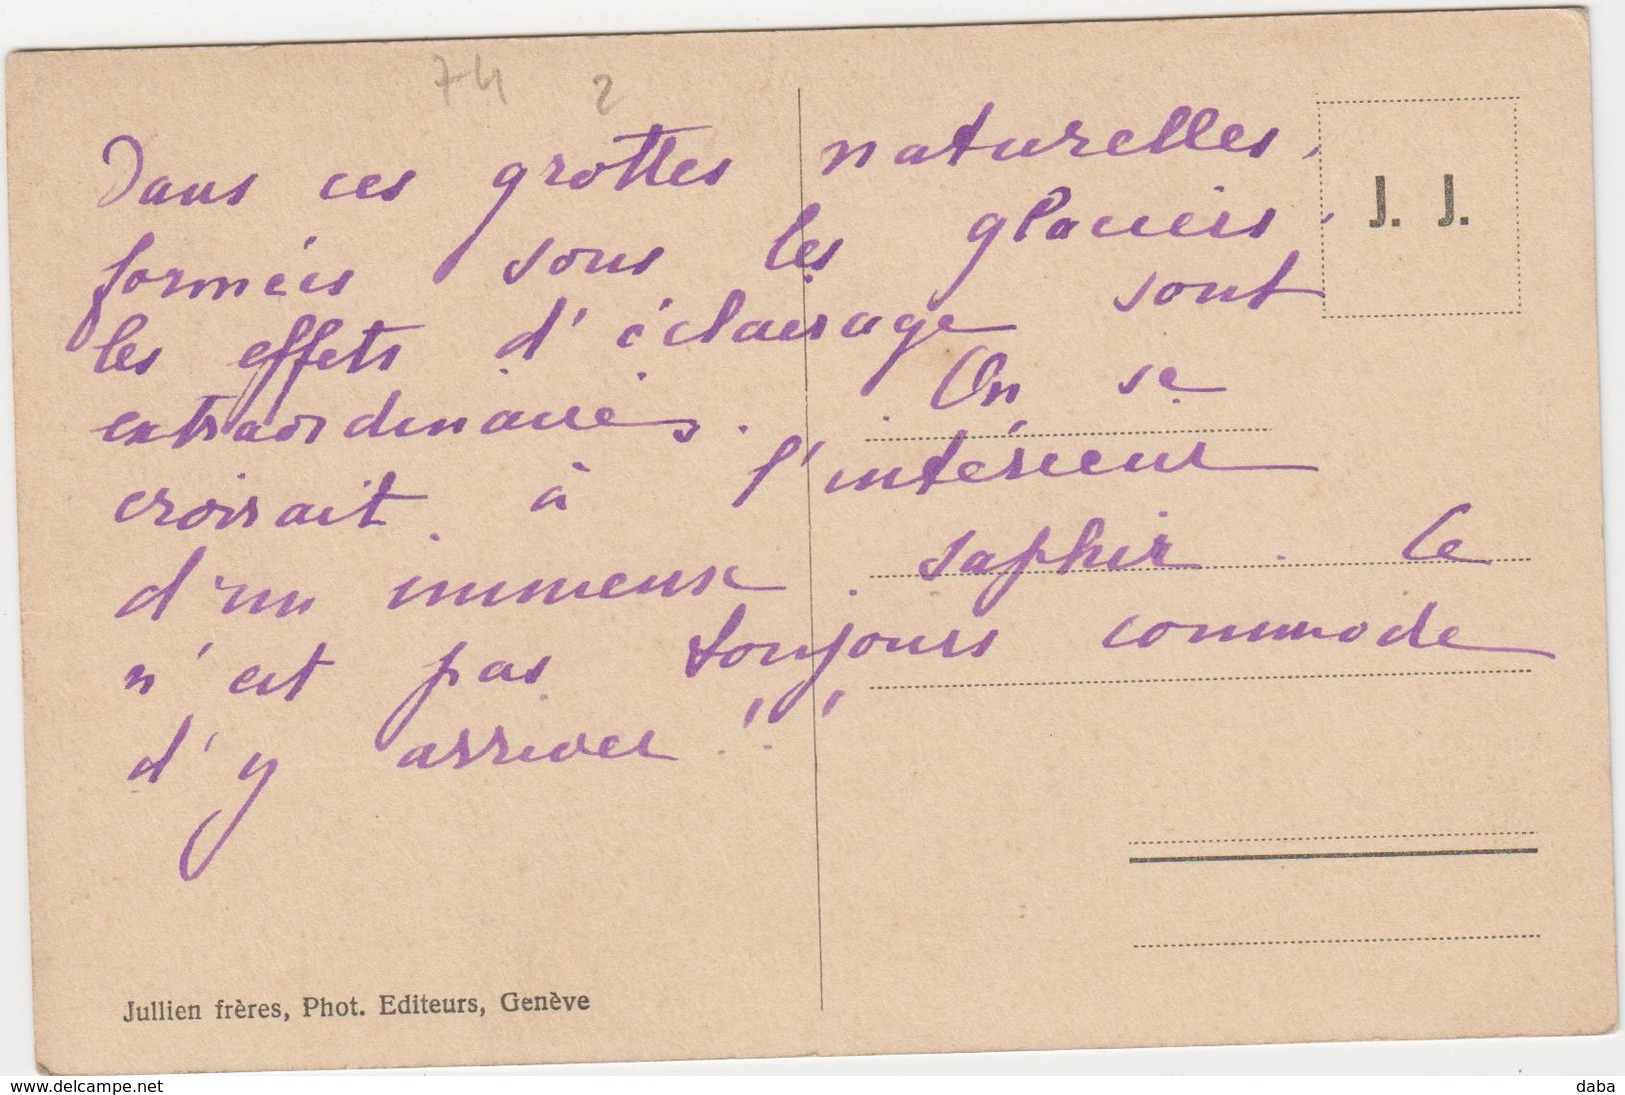 74 2
Dans ces grottes naturelles,
formées sous les glaciers,
les effets d'éclairage sont
extraordinaires. On se
croirait à l'intérieur
d'un immense saphir. Ce
n'est pas toujours commode
d'y arriver!!
J. J.
Jullien frères, Phot. Editeurs, Genève
www.delcampe.net
daba